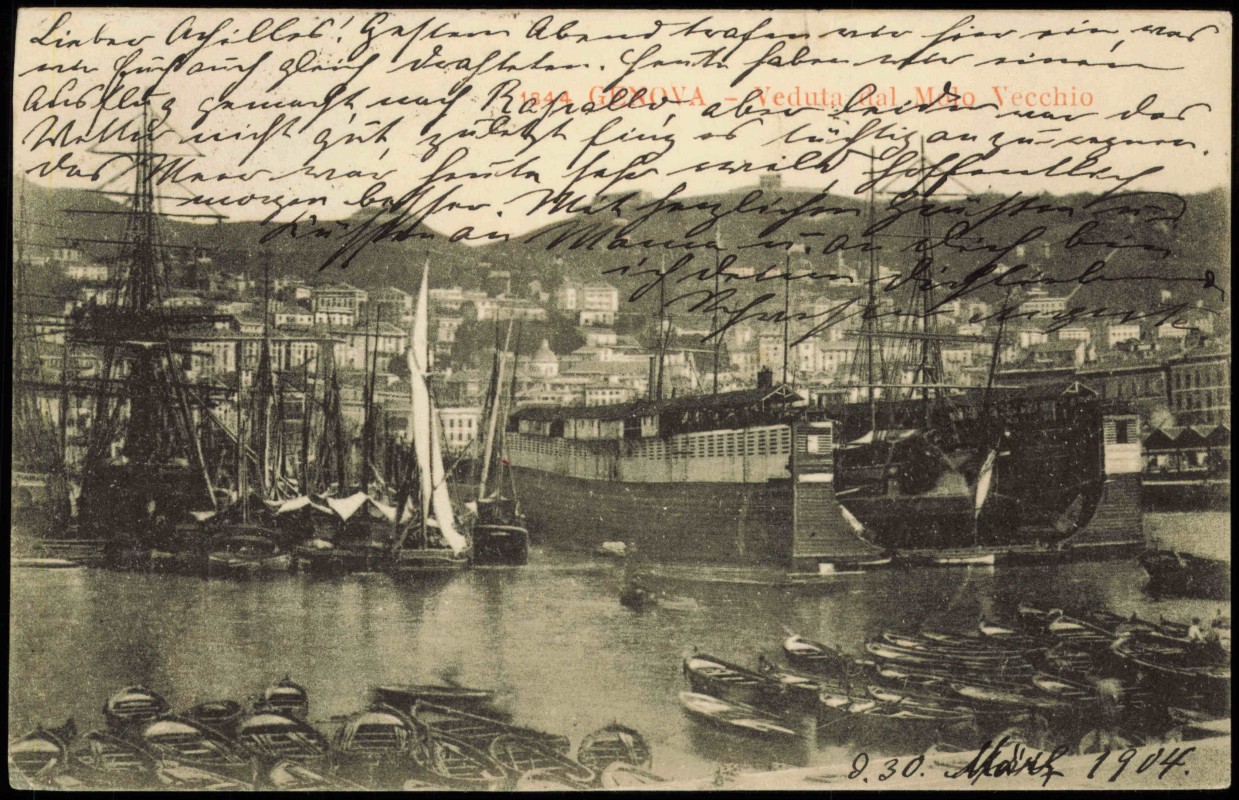 Lieber Achilles! Gestern Abend trafen wir hier ein, was
wir Euch auch gleich drahteten. Heute haben wir einen
Ausflug gemacht nach Rapallo, aber leider war das
1844 GENOVA - Veduta dal Molo Vecchio
Wetter nicht gut zuletzt fing es tüchtig an zu regnen.
das Meer war heute sehr wild hoffentlich
morgen besser. Mit herzlichen Grüßen und
Küssen an Mama u. an Dich bin
ich Dein Dichliebender
August
d. 30. März 1904.